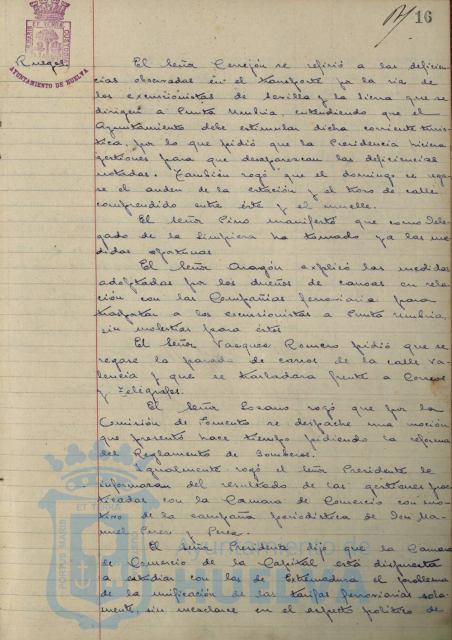 16
Ruegos.
AYUNTAMIENTO DE HUELVA
El Señor Cerrejón se refirió a las deficien-
cias observadas en el transporte pa la ria de
los excursionistas de Sevilla y la Sierra que se
dirigen a Punta Umbria, entendiendo que el
Ayuntamiento debe estimular dicha corriente turis-
tica, por lo que pidió que la Presidencia hiciera
gestiones para que desaparezcan las deficiencias
notadas. También rogó que el domingo se rega-
se el anden de la estación y el trozo de calle
comprendido entre ésta y el muelle.
El Señor Pino manifestó que como Dele-
gado de la Limpieza ha tomado ya las me-
didas oportunas
El Señor Aragón explicó las medidas
adoptadas por los dueños de canoas en rela-
ción con las Compañias ferroviarias para
trasportar a los excursionistas a Punta Umbria,
sin molestias para éstos
El Señor Vazquez Romero pidió que se
regase la parada de carros de la calle Va-
lencia y que se trasladara frente a Correos
y Telégrafos.
El Señor Lozano rogó que por la
Comisión de Fomento se despache una moción
que presentó hace tiempo pidiendo la reforma
del Reglamento de Bomberos.
Igualmente rogó el Señor Presidente le
informaran del resultado de las gestiones prac-
ticadas con la Camara de Comercio con mo-
tivo de la campaña periodistica de Don Ma-
nuel Perez y Perez.
El Señor Presidente dijo que la Camara
de Comercio de la Capital está dispuesta
a estudiar con las de Extremadura el problema
de la unificación de las tarifas ferroviarias sola-
mente, sin mezclarse en el aspecto politico de
Ayuntamiento de
HUELVA
PORTUS MARIS
ET TERRAE